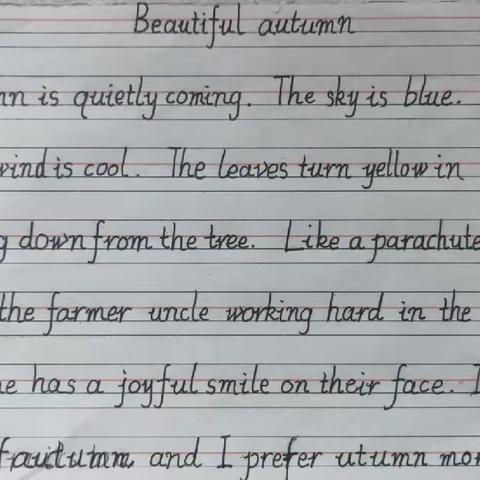 Beautiful autumn
is quietly coming. The sky is blue.
wind is cool. The leaves turn yellow in
down from the tree. Like a parachute
the farmer uncle working hard in the
has a joyful smile on their face.
and I prefer utumn